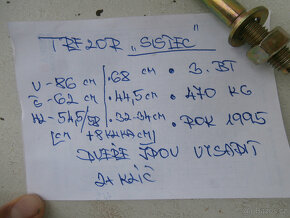 TREZOR „SISTEC"
V-86 cm .68 cm . 3. BT
Š-62 cm .44,5 cm . 470 KG
HL-54,5/58 .32-34 cm . ROK 1995
[cm +8 KLIKA cm]
DVEŘE JDOU VYSADIT
2x KLÍČ